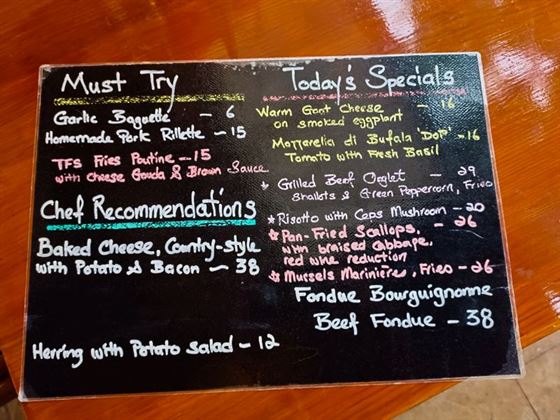 Must Try
Garlic Baguette - 6
Homemade Pork Rillette - 15
TFS Fries Poutine - 15
with Cheese Gouda & Brown Sauce
Chef Recommendations
Baked Cheese, Country-style
with Potato & Bacon - 38
Herring with Potato Salad - 12
Today's Specials
Warm Goat Cheese - 16
on smoked eggplant
Mozzarella di Bufala 'DOP' - 16
Tomato with Fresh Basil
* Grilled Beef Onglet - 29
Shallots & Green Peppercorn, Fries
* Risotto with Ceps Mushroom - 20
* Pan-Fried Scallops, - 26
with braised cabbage,
red wine reduction
* Mussels Marinières, Fries - 26
Fondue Bourguignonne
Beef Fondue - 38